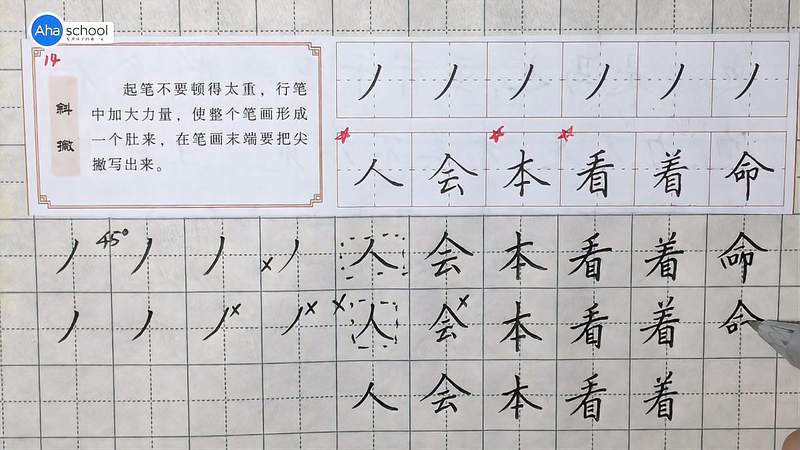 Aha school
14
斜撇
起笔不要顿得太重，行笔
中加大力量，使整个笔画形成
一个肚来，在笔画末端要把尖
撇写出来。
丿 丿 丿 丿 丿 丿
人 会 本 看 着 命
丿 45° 丿 丿 x 丿 人 会 本 看 着 命
丿 丿 丿 x 丿 x x 人 会 x 本 看 着
人 会 本 看 着